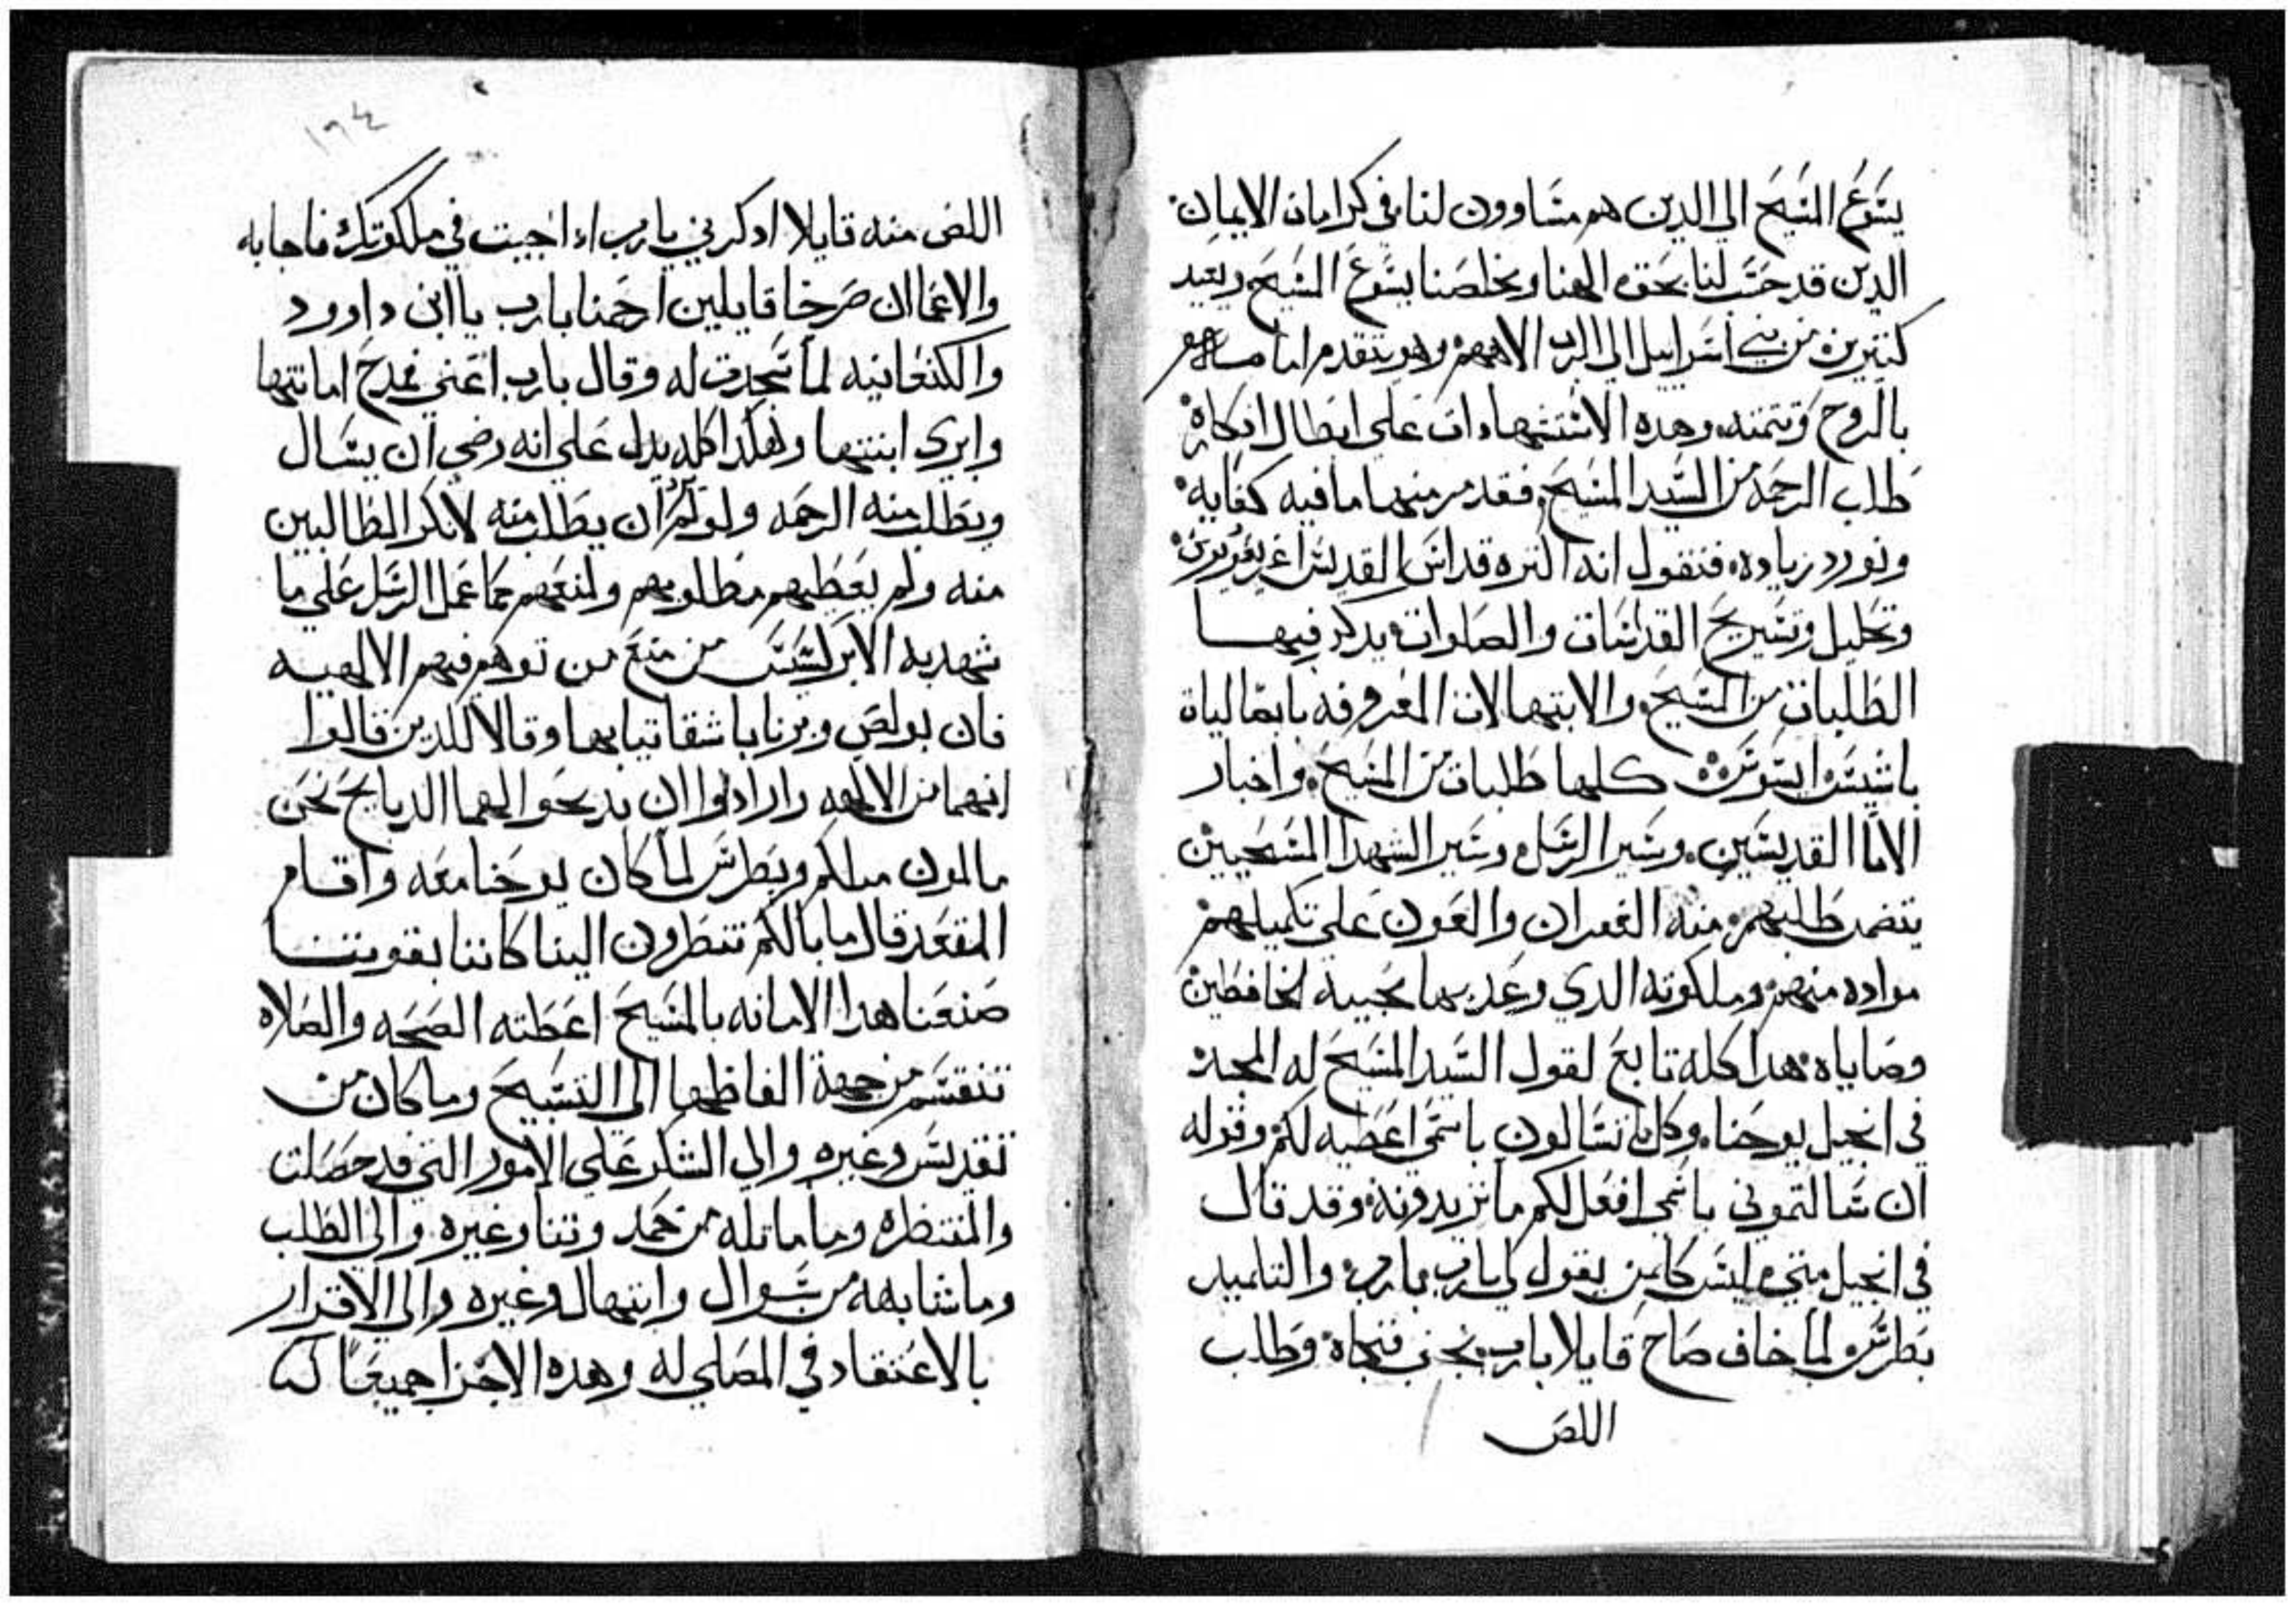 يسوع المسيح الي الدين هم مساوون لنا في كرامات الايمان
الدين قد حسب لنا بحق الهنا ومخلصنا يسوع المسيح ويعيد
كتيرين من بني اسراييل الي الرب الاههم وهو يتقدم امامه
بالروح وتتمته وهده الاستشهادات علي ابطال افكاره
طلب الرحمه من السيد المسيح فقد مر منها ما فيه كفايه
ونورد زياده فنقول انه اكتره قداس القديس اغريغوريوس
وتحليل وتسريح القداسات والصلوات يدكر فيها
الطلبات من المسيح والابتهالات المعروفه بابصاليات
باشيس ايسوس كلها طلبات من المسيح واخبار
الابا القديسين وسير الرسل وسير الشهدا المسيحيين
يتضمن طلبهم منه الغفران والعون علي تكميلهم
مواده منهم وملكوته الدي وعد بها محبيه الحافظين
وصاياه هدا كله تابع لقول السيد المسيح له المجد
في انجيل يوحنا وكل ما تسالون باسمي اعطيه لكم وقوله
ان سالتموني باسمي افعل لكم ما تريدونه وقد قال
في انجيل متي ليس كلمن يقول لي يارب يارب والتلميد
بطرس لما خاف صاح قايلا يارب نجني فنجاه وطلب
اللص
١٩٤
اللص منه قايلا ادكرني يارب ادا جيت في ملكوتك فاجابه
والاعمالان صرخا قايلين ارحمنا يارب يا ابن داوود
والكنعانيه لما سجدت له وقال يارب اعني فمدح امانتها
وابري ابنتها وهكدا كله يدل علي انه رضي ان يسال
ويطلب منه الرحمه ولو لم ان يطلب منه لانكر الطالبين
منه ولم يعطيهم مطلوبهم ولمنعهم كما عمل الرسل علي ما
شهد به الابركسيس من منع من توهم فيهم الالهيه
فان بولص وبرنابا شقا تيابهما وقالا للدين قالوا
انهما من الالهه وارادوا ان يدبحوا لهما الدبايح نحن
مالمون متلكم وبطرس لما كان يوحنا معه واقام
المقعد قال ما بالكم تنظرون الينا كاننا بقوتنا
صنعنا هدا الامانه بالمسيح اعطته الصحه والصلاه
تنقسم من جهة الفاظها الي التسبيح وما كان من
تقديس وغيره والي الشكر علي الامور التي قد حصلت
والمنتظره وما ماتله من حمد وتنا وغيره والي الطلب
وما شابهه من سوال وابتهال وغيره والي الاقرار
بالاعتقاد في المصلي له وهده الاجزا جميعا